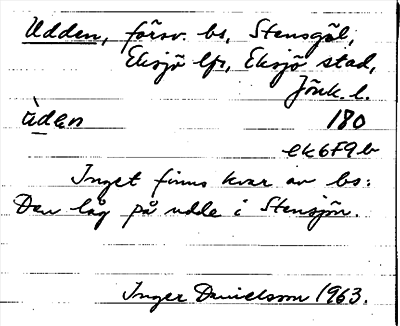 Udden, försv. bs, Stensgöl,
Eksjö lfs, Eksjö stad,
Jönk. l.
ùden 180
ek6f9b
Inget finns kvar av bs:
Den låg på udde i Stensjön.
Inger Danielsson 1963.